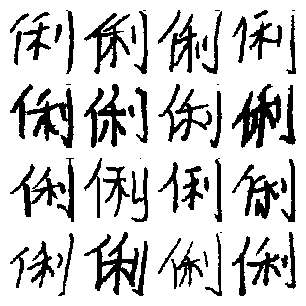 俐俐俐俐
俐俐俐俐
俐俐俐俐
俐俐俐俐